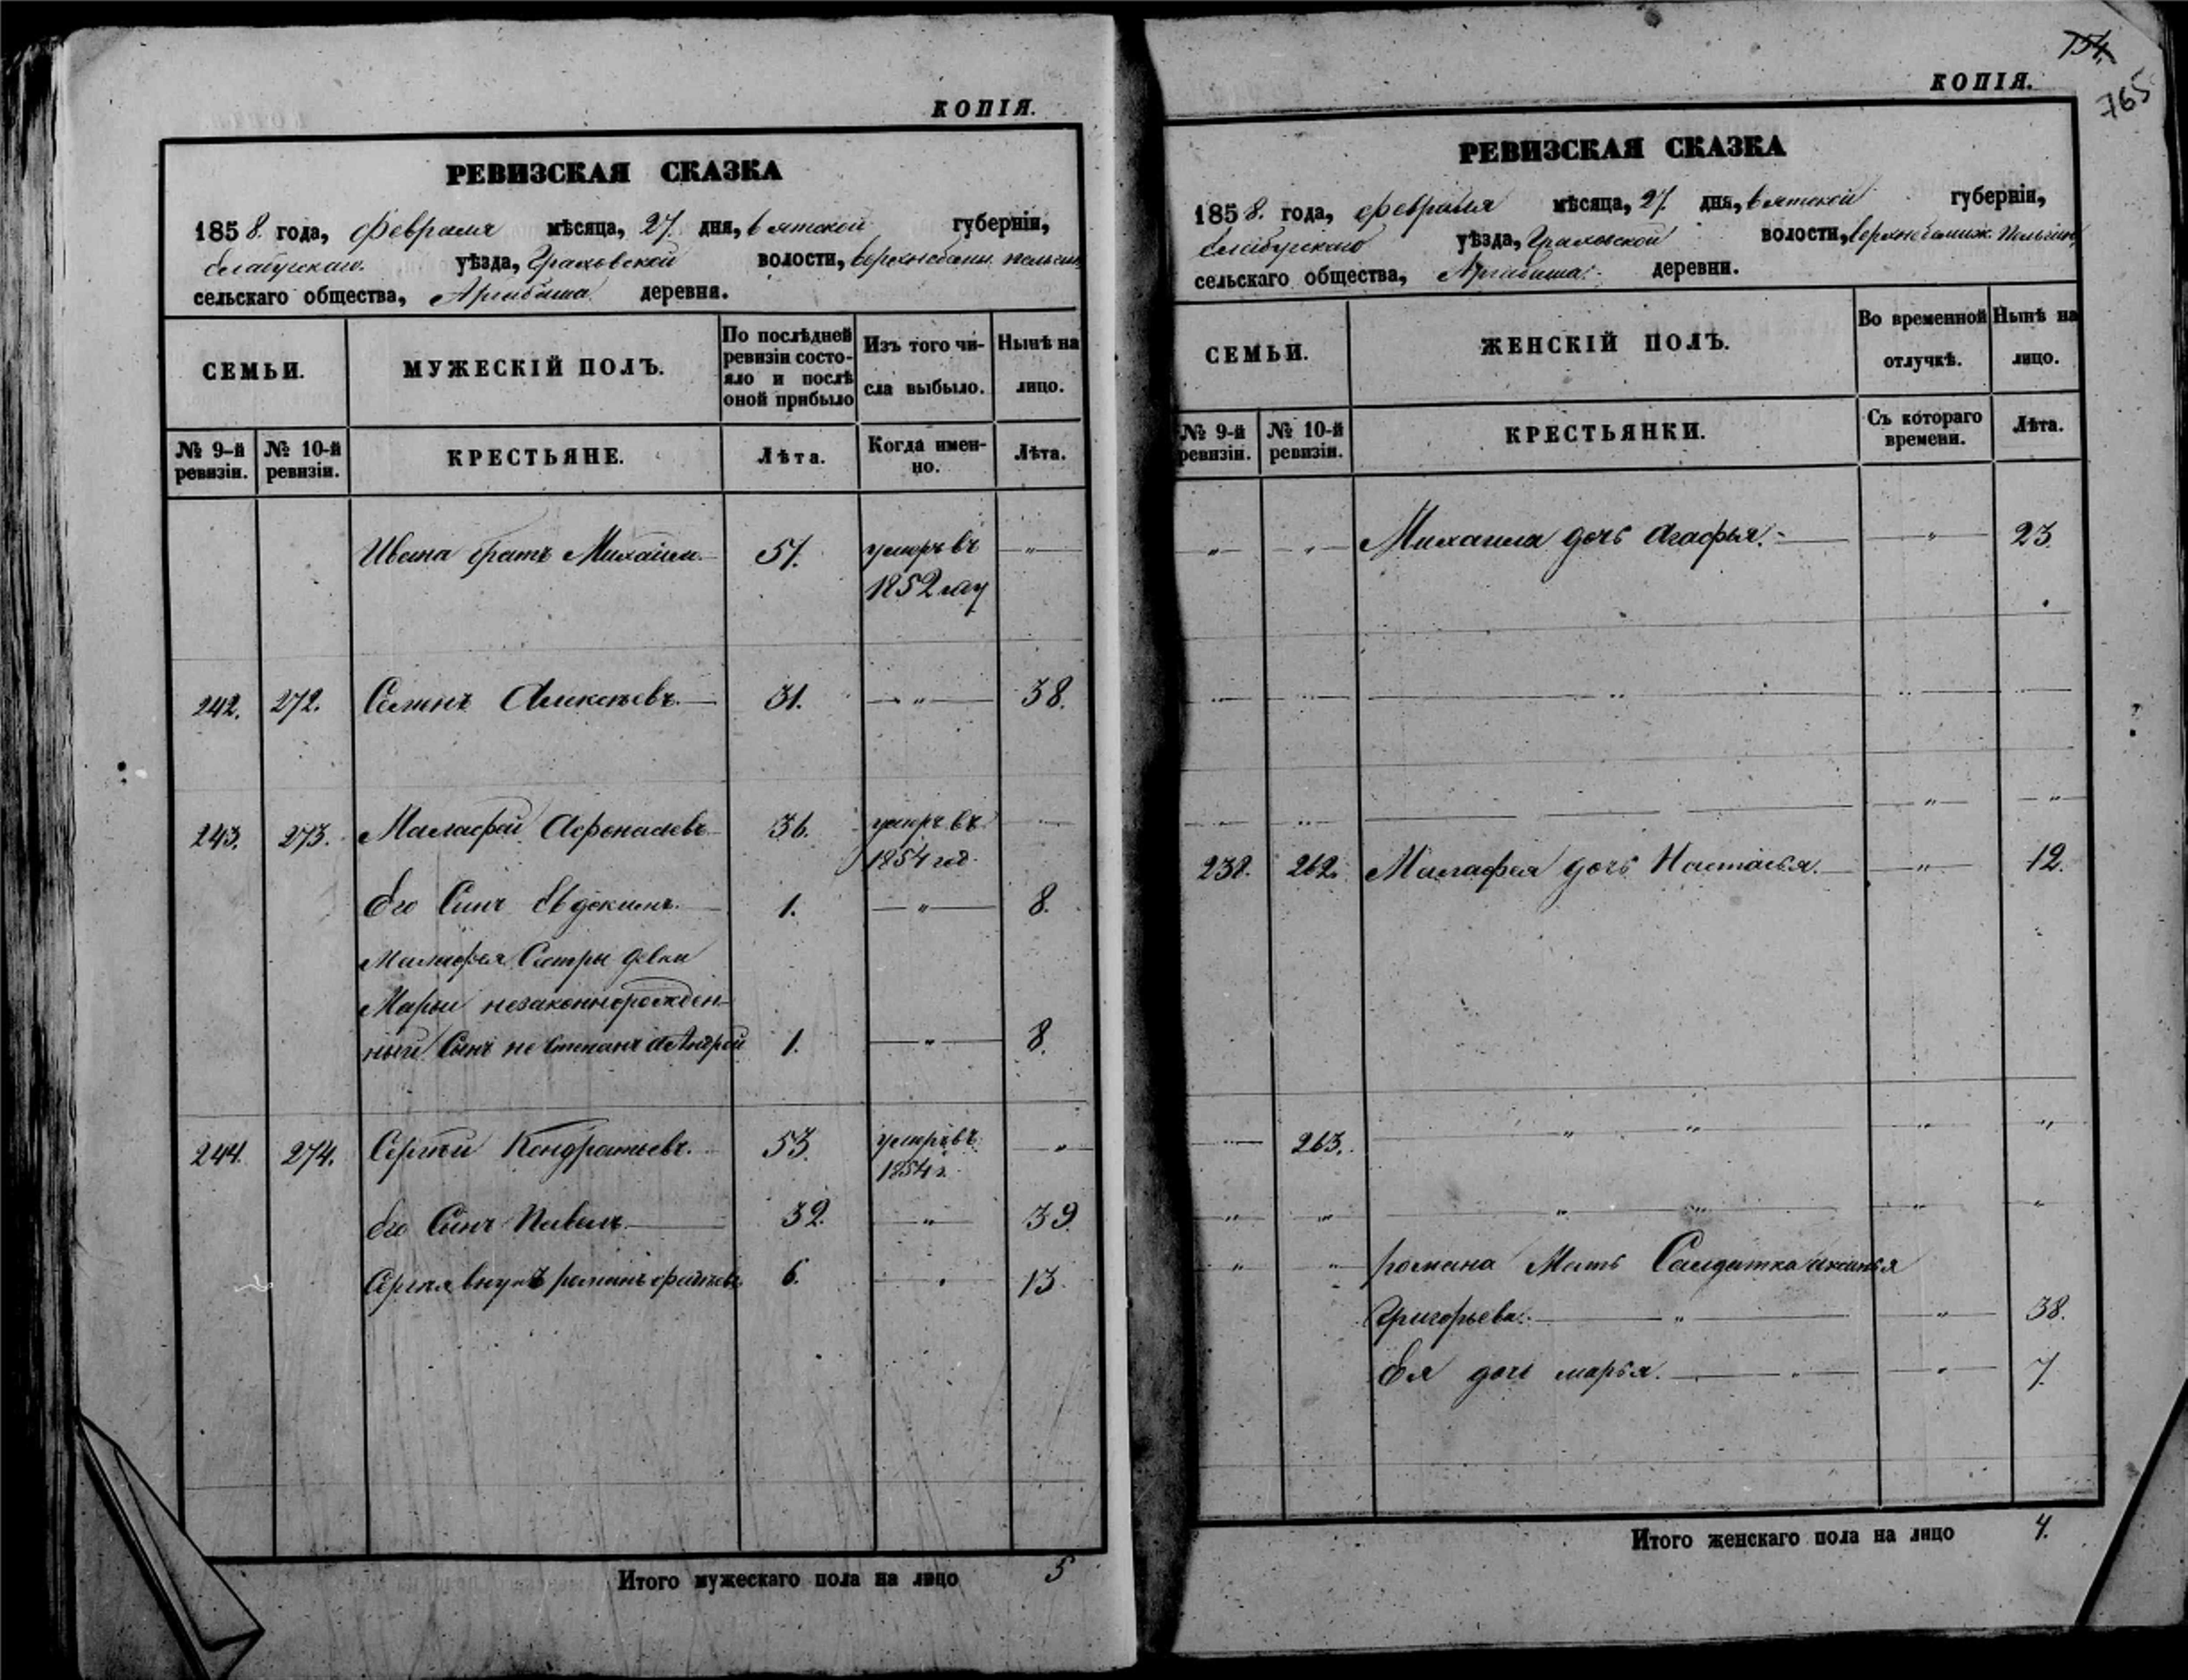 КОПІЯ.
РЕВИЗСКАЯ СКАЗКА
1858. года, Февраля мѣсяца, 27. дня, Вятской губерніи,
Елабугскаго уѣзда, Граховской волости,
сельскаго общества, деревня.
СЕМЬИ.
МУЖЕСКІЙ ПОЛЪ.
По послѣдней ревизіи состояло и послѣ оной прибыло
Изъ того числа выбыло.
Нынѣ на лицо.
№ 9-й ревизіи.
№ 10-й ревизіи.
КРЕСТЬЯНЕ.
Лѣта.
Когда именно.
Лѣта.
Ивана братъ Михаила 51. умеръ въ — „ —
1852 году
242. 272. Семенъ Алексѣевъ. 31. — „ — 38.
243. 273. Малафей Афонасьевъ 36. умеръ въ
1854 год.
Его Сынъ Евдокимъ. 1. — „ — 8.
Малафея Сестры девки
Марьи незаконнорожден-
ный Сынъ не Степанъ а Андрей 1. — „ — 8.
244. 274. Сергѣй Кондратьевъ. 53. умеръ въ — „
1854 г.
Его Сынъ Павелъ. 32. — „ — 39.
Сергея внукъ романъ 6. 13
Итого мужескаго пола на лицо 5
754.
765
КОПІЯ.
РЕВИЗСКАЯ СКАЗКА
1858. года, Февраля мѣсяца, 27. дня, Вятской губерніи,
Елабугскаго уѣзда, Граховской волости,
сельскаго общества, деревни.
СЕМЬИ.
ЖЕНСКІЙ ПОЛЪ.
Во временной отлучкѣ.
Нынѣ на лицо.
№ 9-й ревизіи.
№ 10-й ревизіи.
КРЕСТЬЯНКИ.
Съ котораго времени.
Лѣта.
„ — „ — Михаила дочь Агафья. — „ — 23.
238. 262. Малафея дочь Настасья. — „ — 12.
263. „ „ „ „
„ „ романа Мать Салдатка аксинья
Григорьева. — „ — „ — 38.
Ея дочь марья. — „ — „ — 7.
Итого женскаго пола на лицо 4.